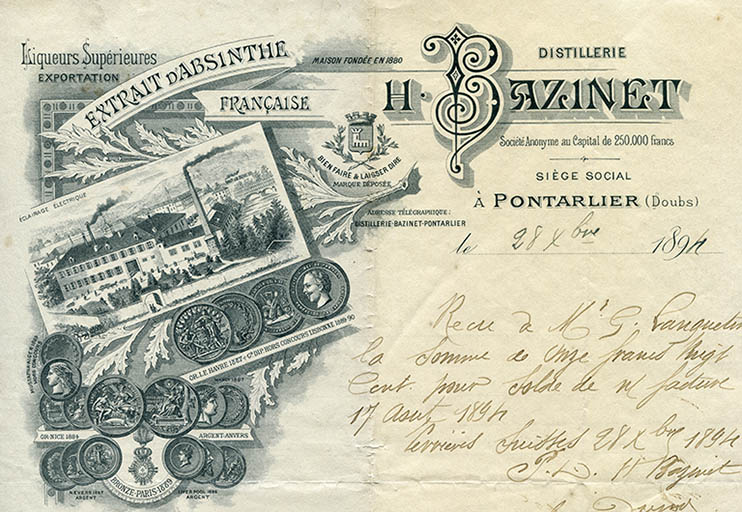 Liqueurs Supérieures
EXPORTATION
EXTRAIT D'ABSINTHE
FRANÇAISE
MAISON FONDÉE EN 1880
DISTILLERIE
H. BAZINET
Société Anonyme au Capital de 250.000 francs
SIÈGE SOCIAL
À PONTARLIER (Doubs)
BIEN FAIRE & LAISSER DIRE
MARQUE DÉPOSÉE
ADRESSE TÉLÉGRAPHIQUE:
DISTILLERIE-BAZINET-PONTARLIER
ÉCLAIRAGE ÉLECTRIQUE
le 28 Xbre 1894
OR. LE HAVRE 1887 & Gd DIP. HORS CONCOURS LISBONNE 1889-90
OR-NICE 1884
ARGENT-ANVERS
BRONZE-PARIS-1889
NEVERS 1887
ARGENT
LIVERPOOL 1886
ARGENT
Recu de Mr G. Lanquetin
la somme de Onze francs
Cent. pour solde de n/ facture
17 Aout 1894
Verrières Suisses 28 Xbre 1894
P. H Bazinet